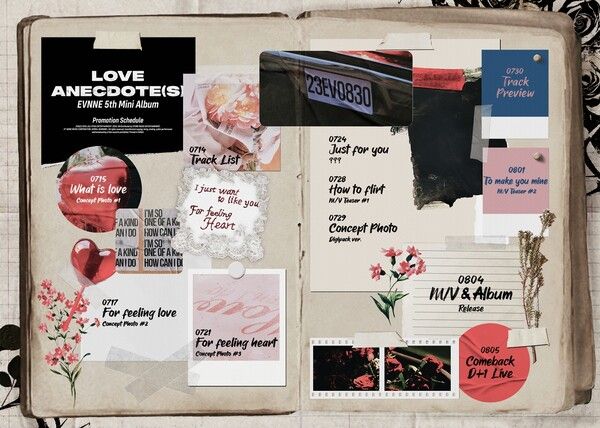 LOVE
ANECDOTE(S)
EVNNE 5th Mini Album
Promotion Schedule
0714
Track List
0715
What is love
Concept Photo #1
I just want
to like you
For feeling
Heart
I'M SO
ONE OF A KIND
HOW CAN I DO
I'M SO
ONE OF A KIND
HOW CAN I DO
0717
For feeling love
Concept Photo #2
0721
For feeling heart
Concept Photo #3
23EV0830
0724
Just for you
???
0728
How to flirt
M/V Teaser #1
0729
Concept Photo
Digipack ver.
0730
Track
Preview
0801
To make you mine
M/V Teaser #2
0804
M/V & Album
Release
0805
Comeback
D+1 Live